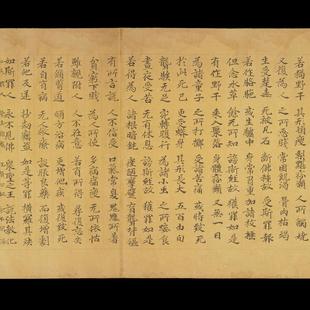 若狗野干 其形頷瘦 黧黮疥癩 人所觸嬈
又復為人 之所惡賤 常困飢渴 骨肉枯竭
生受楚毒 死被瓦石 斷佛種故 受斯罪報
若作駱駝 或生驢中 身常負重 加諸杖捶
但念水草 餘无所知 謗斯經故 獲罪如是
有作野干 來入聚落 身體疥癩 又无一目
為諸童子 之所打擲 受諸苦痛 或時致死
於此死已 更受蟒身 其形長大 五百由旬
聾騃无足 宛轉腹行 為諸小虫 之所唼食
晝夜受苦 无有休息 謗斯經故 獲罪如是
若得為人 諸根闇鈍 矬陋攣躄 盲聾背傴
有所言說 人不信受 口氣常臭 鬼魅所著
貧窮下賤 為人所使 多病痟瘦 无所依怙
雖親附人 人不在意 若有所得 尋復忘失
若脩醫道 順方治病 更增他疾 或復致死
若自有病 无人救療 設服良藥 而復增劇
若他反逆 抄劫竊盜 如是等罪 橫羅其殃
如斯罪人 永不見佛 眾聖之王 說法教化